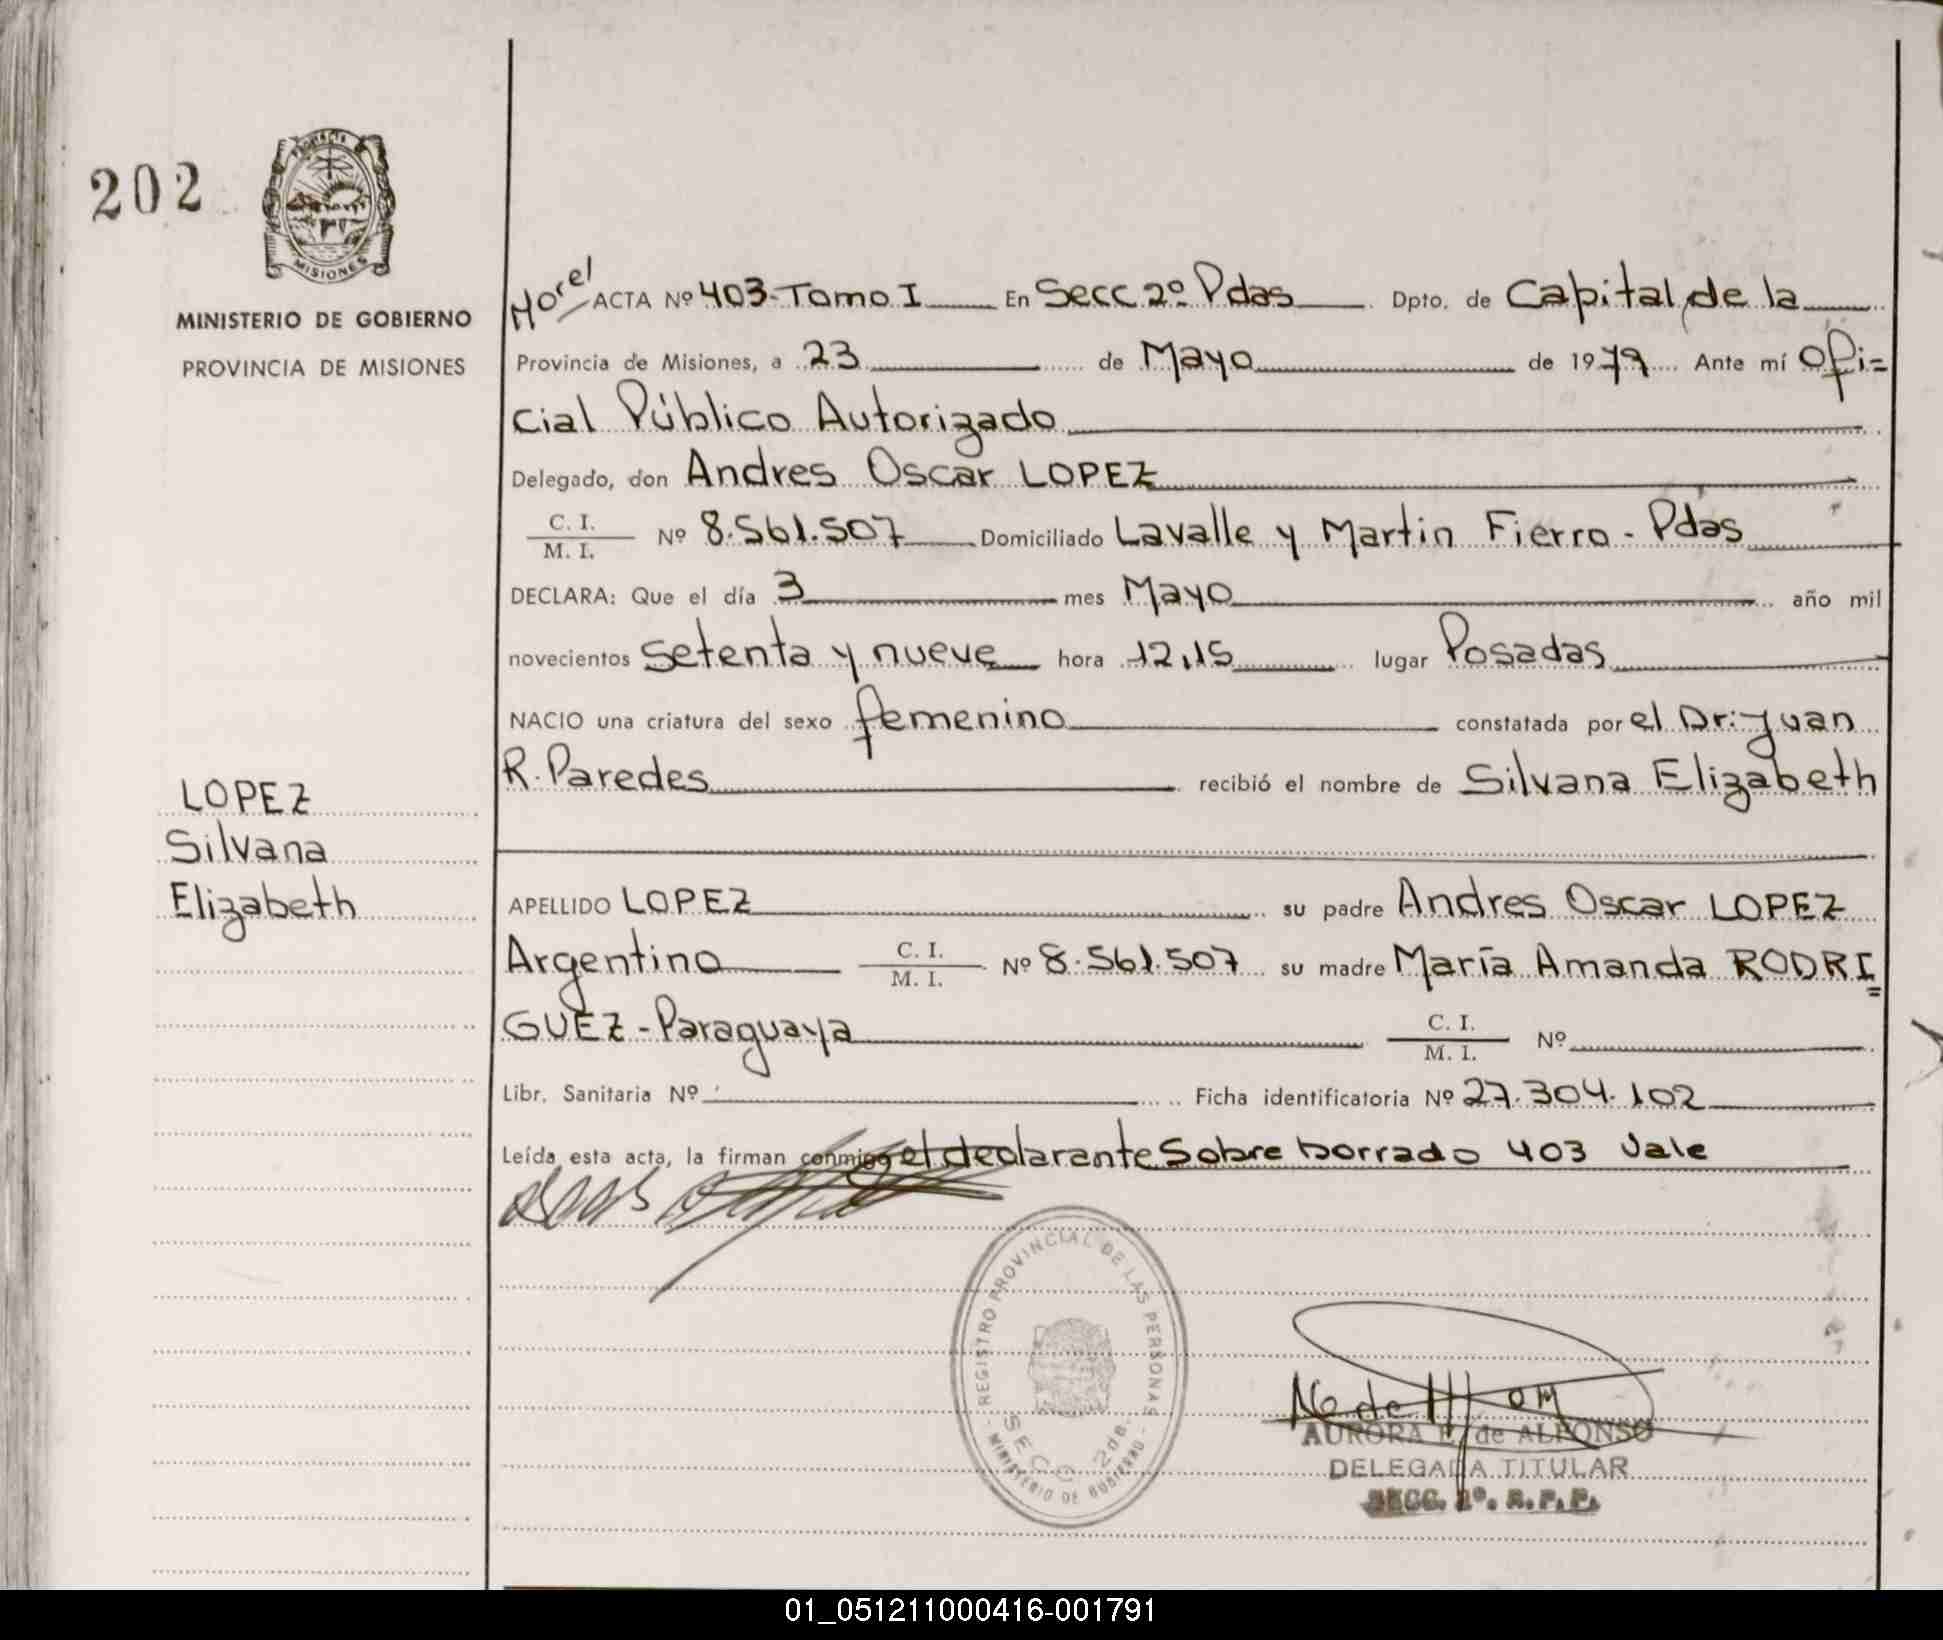 202
PROVINCIA
MISIONES
MINISTERIO DE GOBIERNO
PROVINCIA DE MISIONES
LOPEZ
Silvana
Elizabeth
Morel ACTA Nº 403-Tomo I En Secc 2º Pdas Dpto. de Capital, de la
Provincia de Misiones, a 23 de Mayo de 1979 Ante mí Ofi=
cial Público Autorizado
Delegado, don Andres Oscar LOPEZ
C. I.
M. I. Nº 8.561.507 Domiciliado Lavalle y Martin Fierro - Pdas
DECLARA: Que el día 3 mes Mayo año mil
novecientos setenta y nueve hora 12,15 lugar Posadas
NACIO una criatura del sexo femenino constatada por el Dr: Juan
R. Paredes recibió el nombre de Silvana Elizabeth
APELLIDO LOPEZ su padre Andres Oscar LOPEZ
Argentino C. I.
M. I. Nº 8.561.507 su madre María Amanda RODRI=
GUEZ - Paraguaya C. I.
M. I. Nº
Libr. Sanitaria Nº Ficha identificatoria Nº 27.304.102
Leída esta acta, la firman conmigo el declarante Sobre borrado 403 Vale
REGISTRO PROVINCIAL DE LAS PERSONAS
SECC 2da.
- MINISTERIO DE GOBIERNO -
AURORA E. de ALFONSO
DELEGADA TITULAR
SECC. 2º. R.P.P.
01_051211000416-001791